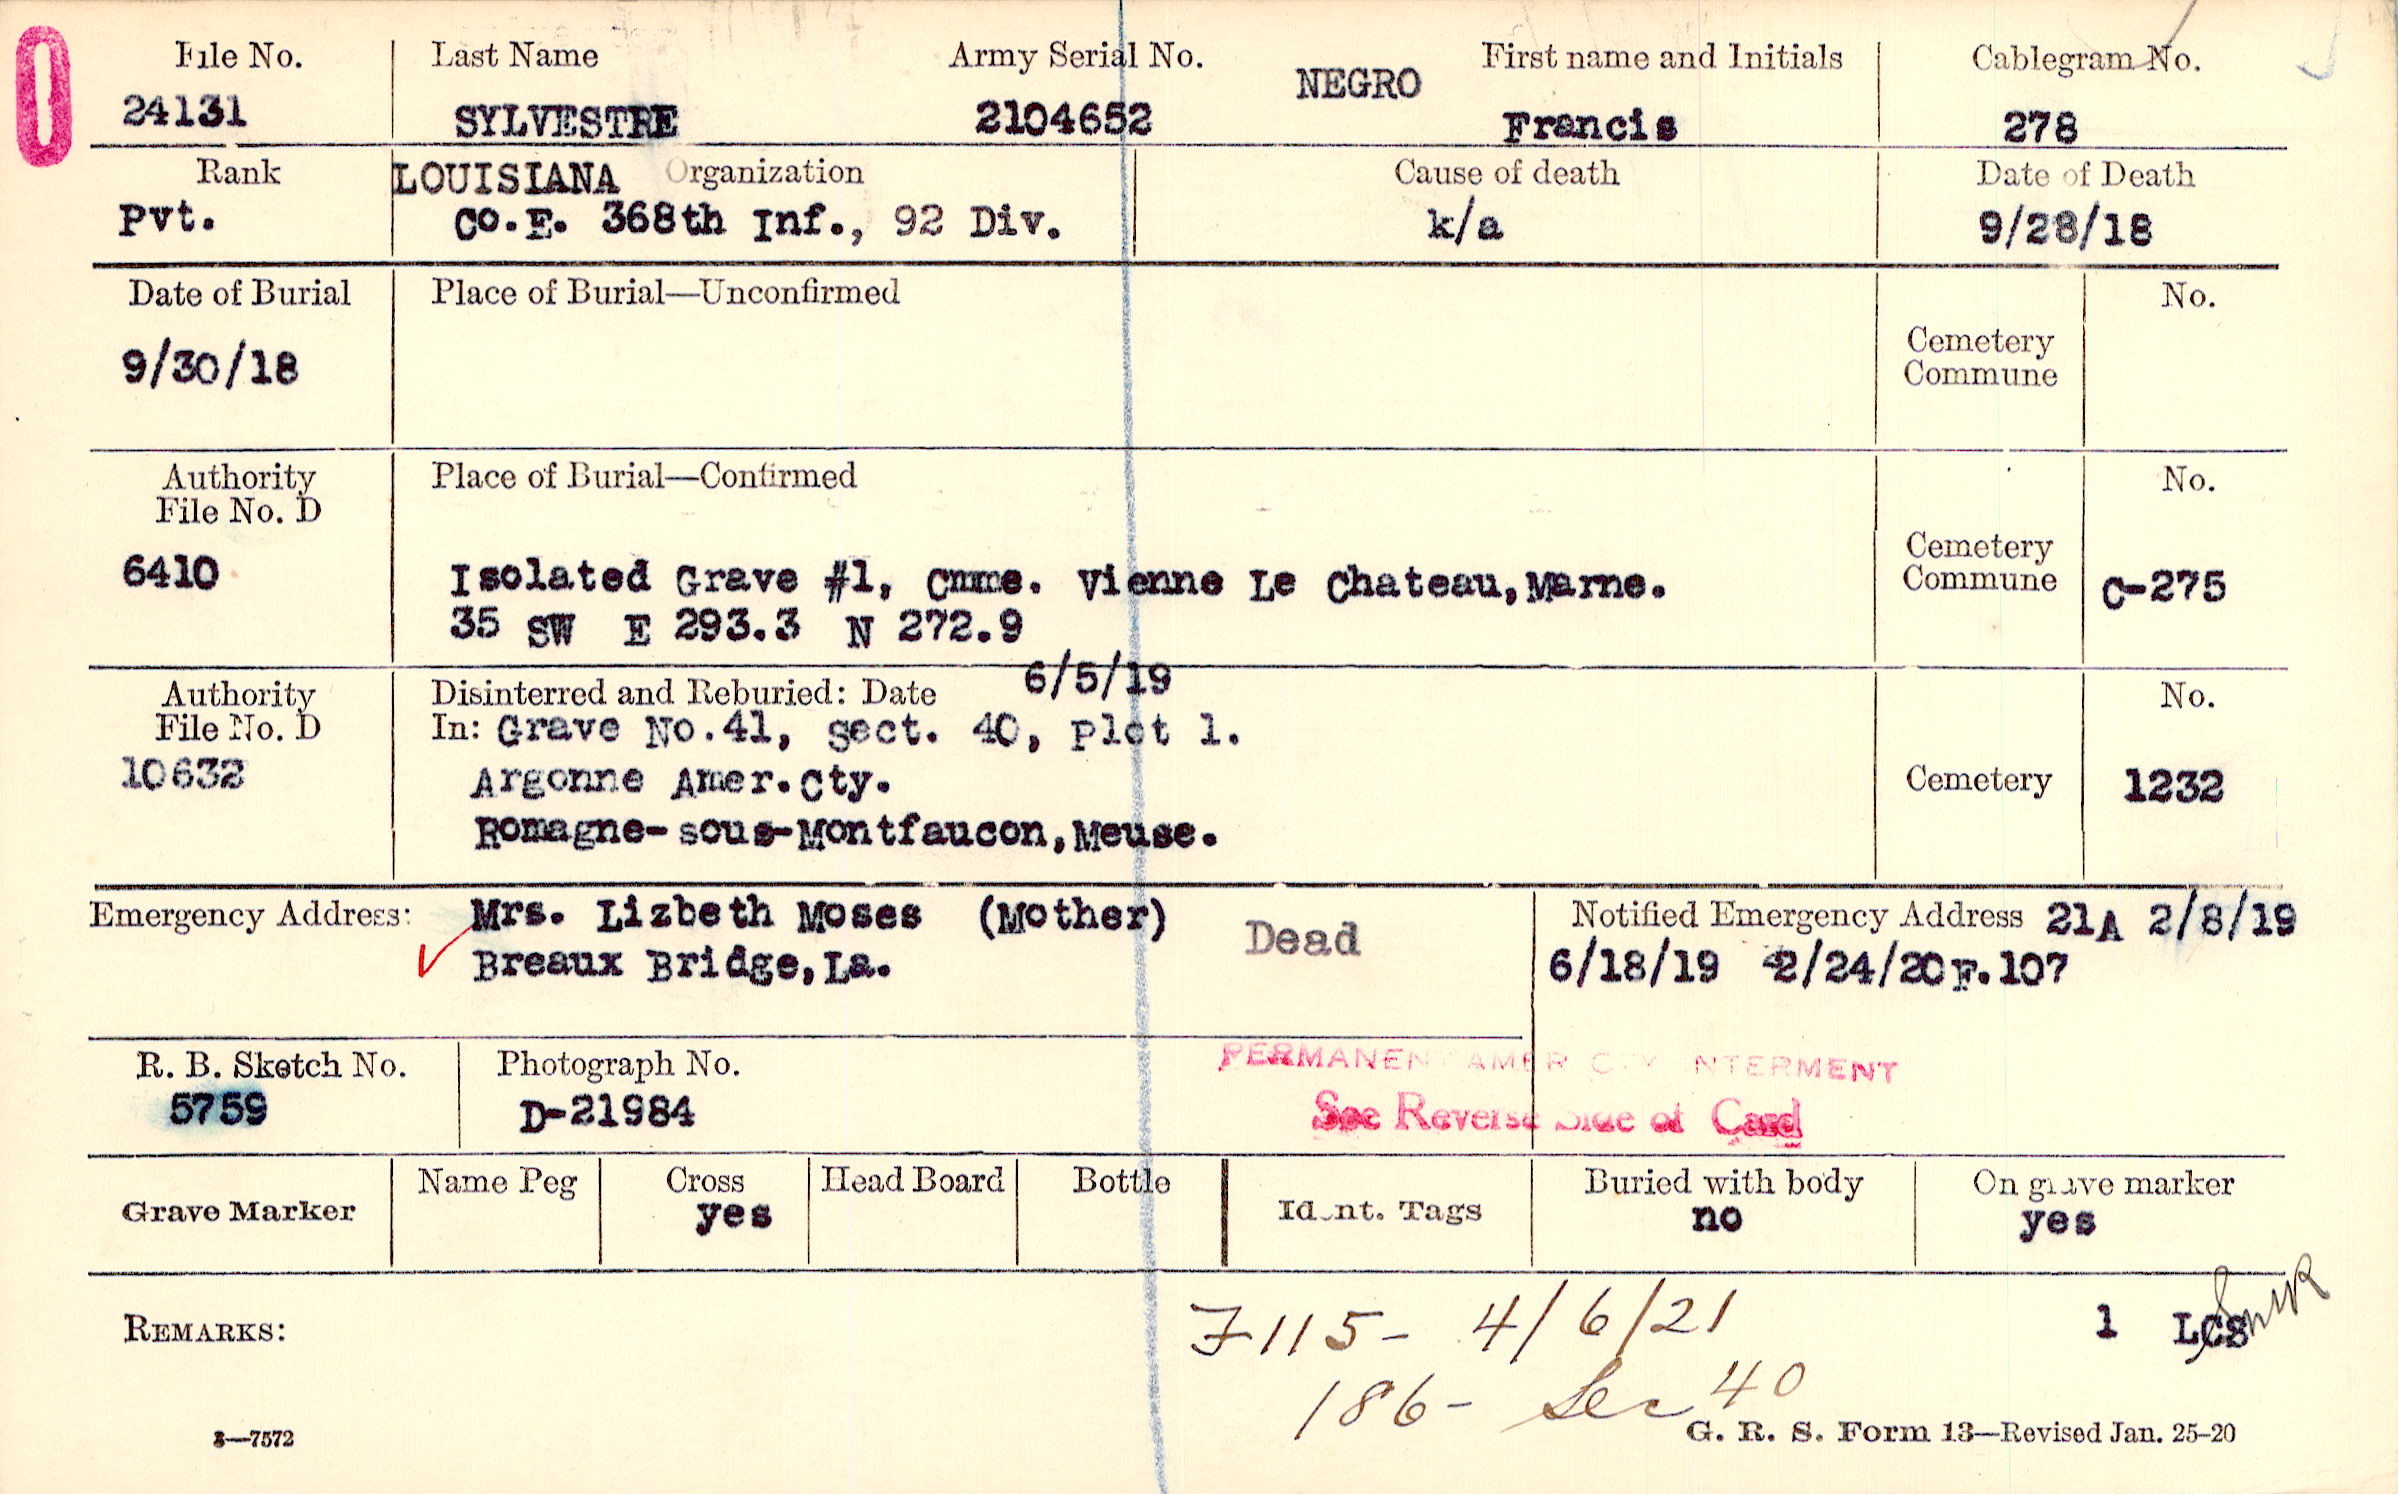 File No. Last Name Army Serial No. NEGRO First name and Initials Cablegram No.
24131 SYLVESTRE 2104652 Francis 278
Rank LOUISIANA Organization Cause of death Date of Death
Pvt. Co.E. 368th Inf., 92 Div. k/a 9/28/18
Date of Burial Place of Burial—Unconfirmed No.
9/30/18 Cemetery
Commune
Authority Place of Burial—Confirmed No.
File No. D
6410 Isolated Grave #1, Cmme. Vienne Le Chateau,Marne. Cemetery
Commune C-275
35 SW E 293.3 N 272.9
Authority Disinterred and Reburied: Date 6/5/19 No.
File No. D In: Grave No.41, Sect. 40, Plot 1.
10632 Argonne Amer.Cty. Cemetery 1232
Romagne-sous-Montfaucon,Meuse.
Emergency Address: Mrs. Lizbeth Moses (Mother) Dead Notified Emergency Address 21A 2/8/19
Breaux Bridge,La. 6/18/19 2/24/20 F.107
R. B. Sketch No. Photograph No. PERMANENT AMER CTY INTERMENT
5759 D-21984 See Reverse Side of Card
Grave Marker Name Peg Cross Head Board Bottle Ident. Tags Buried with body On grave marker
yes no yes
REMARKS: F115- 4/6/21 1 LCS
186- Sec 40
3—7572 G. R. S. Form 13—Revised Jan. 25-20